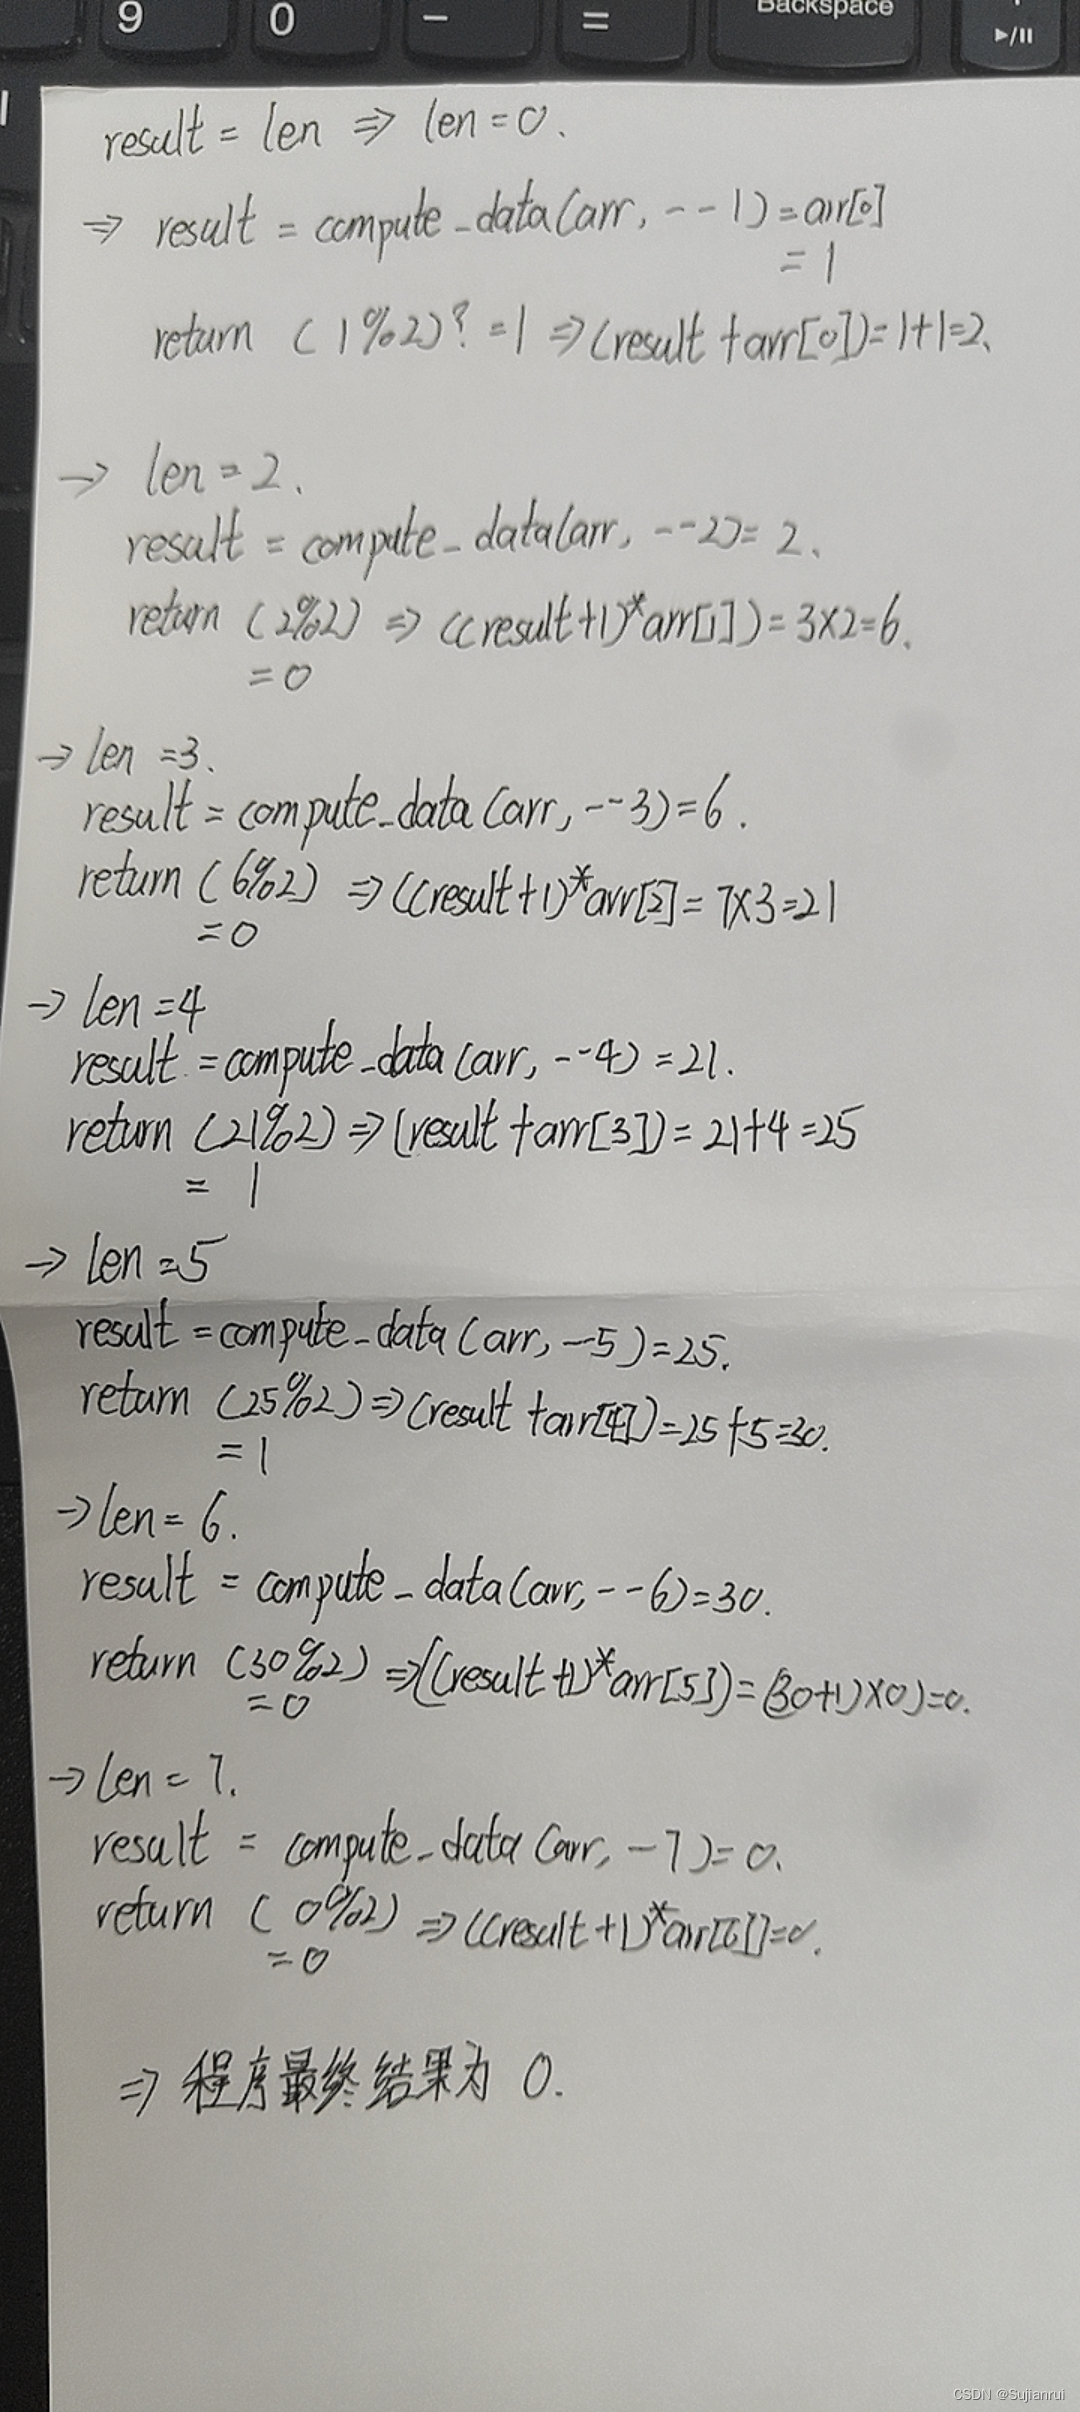 9 0 - = Backspace
▶/II
result = len ⇒ len = 0.
⇒ result = compute_data(arr, --1) = arr[0]
= 1
return (1%2)? = 1 ⇒ (result + arr[0]) = 1+1=2、
→ len = 2.
result = compute_data(arr, --2) = 2、
return (2%2) ⇒ ((result+1)*arr[1]) = 3×2=6.
= 0
→ len =3.
result = compute_data(arr, --3)=6.
return (6%2) ⇒ ((result+1)*arr[2] = 7×3=21
=0
→ len =4
result = compute_data(arr, --4) =21.
return (21%2) ⇒ (result +arr[3]) = 21+4 =25
= 1
→ len =5
result =compute_data(arr, --5)=25.
return (25%2) ⇒ (result +arr[4])=25+5=30.
= 1
→ len= 6.
result = compute_data(arr, --6)=30.
return (30%2) ⇒((result+1)*arr[5])=(30+1)×0)=0.
=0
→ len = 7.
result = compute_data(arr, -7)=0.
return ( 0%2) ⇒ ((result+1)*arr[6])=0.
=0
⇒ 程序最终结果为 0.
CSDN @Sujianrui